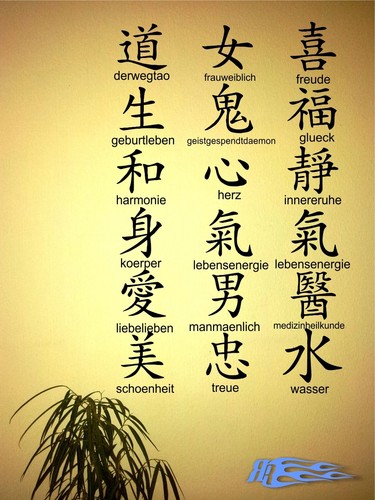 道 女 喜
derwegtao frauweiblich freude
生 鬼 福
geburtleben geistgespendtdaemon glueck
和 心 靜
harmonie herz innereruhe
身 氣 氣
koerper lebensenergie lebensenergie
愛 男 醫
liebelieben manmaenlich medizinheilkunde
美 忠 水
schoenheit treue wasser